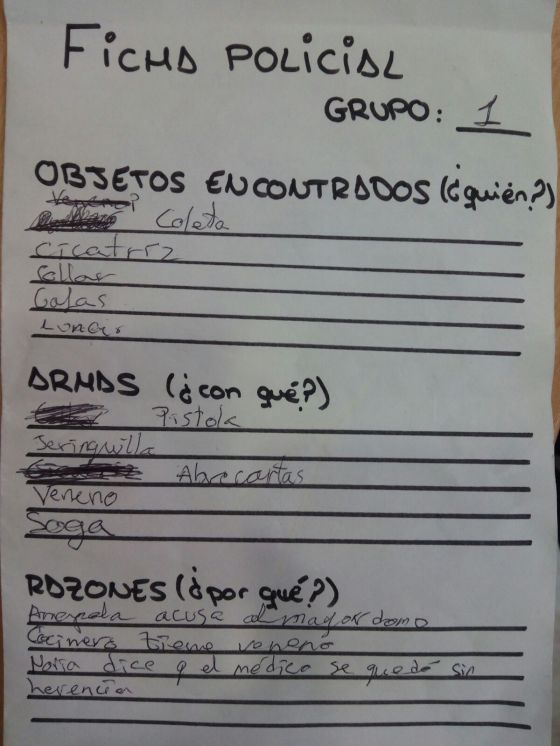 FICHA POLICIAL
GRUPO: 1
OBJETOS ENCONTRADOS (¿quién?)
Veneno?
Coleta
Cicatriz
Collar
Gafas
Lunar
ARMAS (¿con qué?)
Pistola
Jeringuilla
Abrecartas
Veneno
Soga
RAZONES (¿por qué?)
Amapola acusa al mayordomo
Cocinera tiene veneno
dice q el médico se quedó sin
herencia